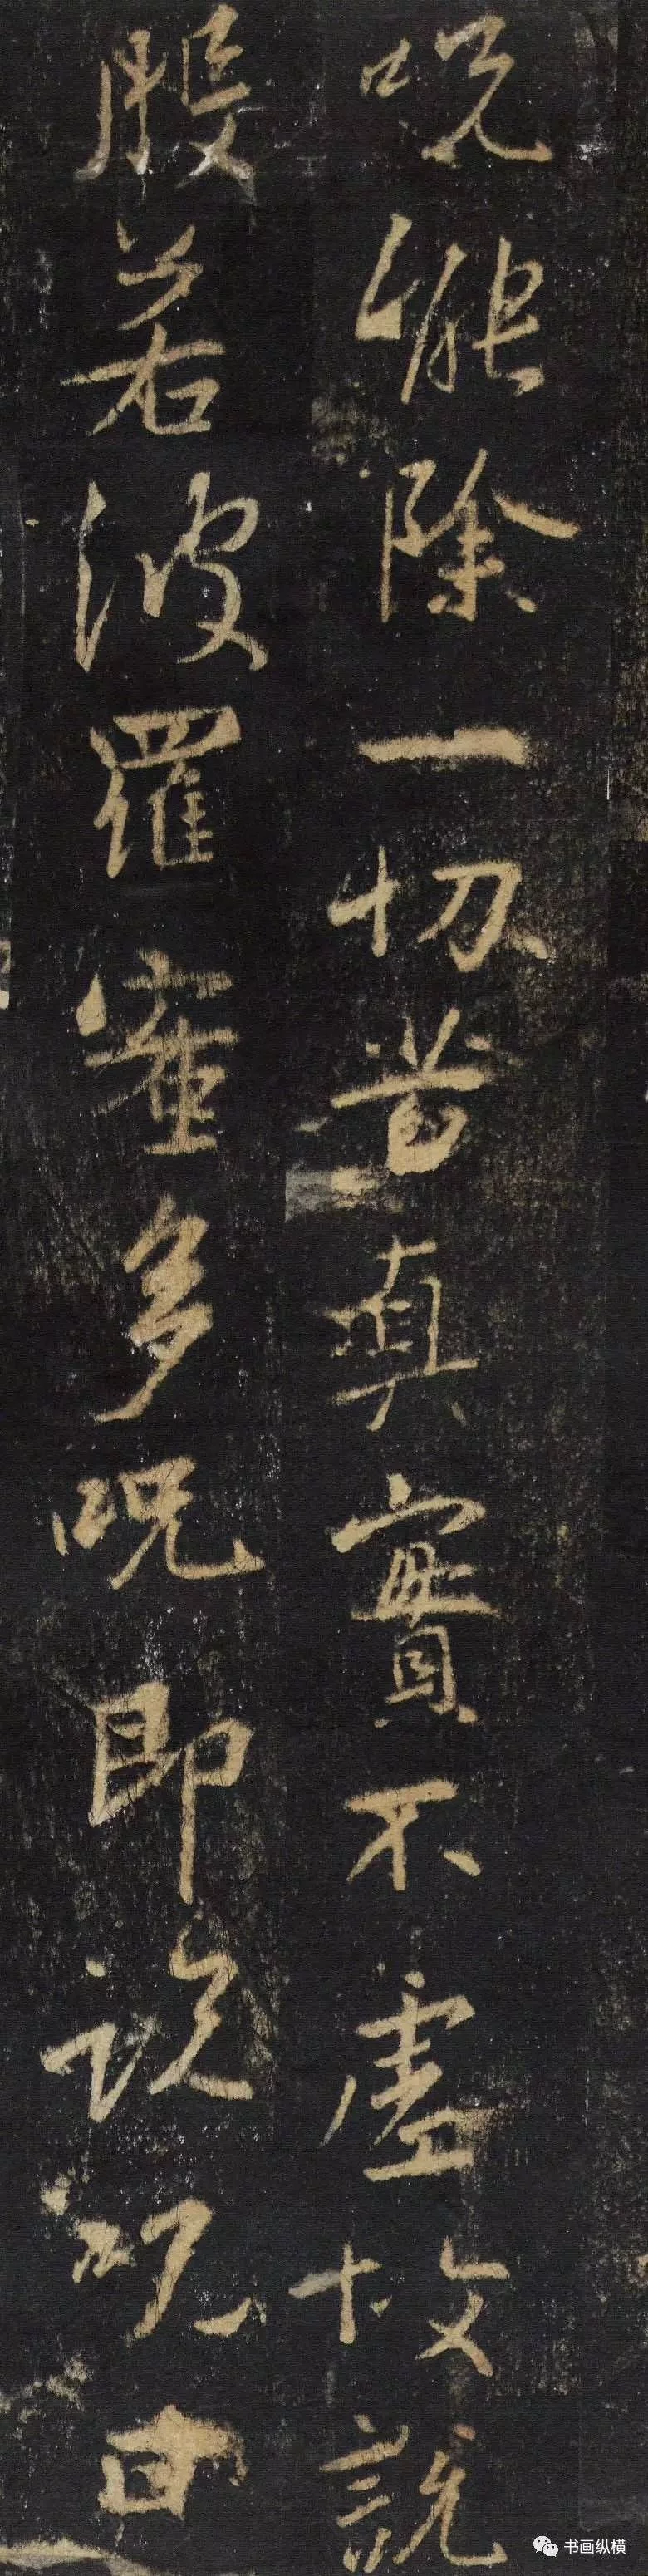 呪能除一切苦真實不虛故說
般若波羅蜜多呪即說呪曰
书画纵横